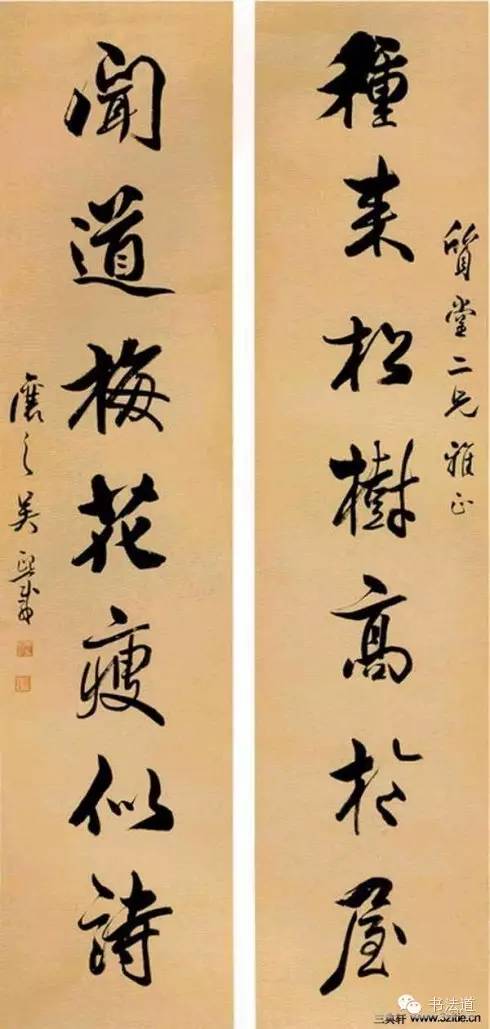 質堂二兄雅正
種來松樹高於屋
聞道梅花瘦似詩
讓之吳熙載
书法道
三奂轩 www.32itie.cn